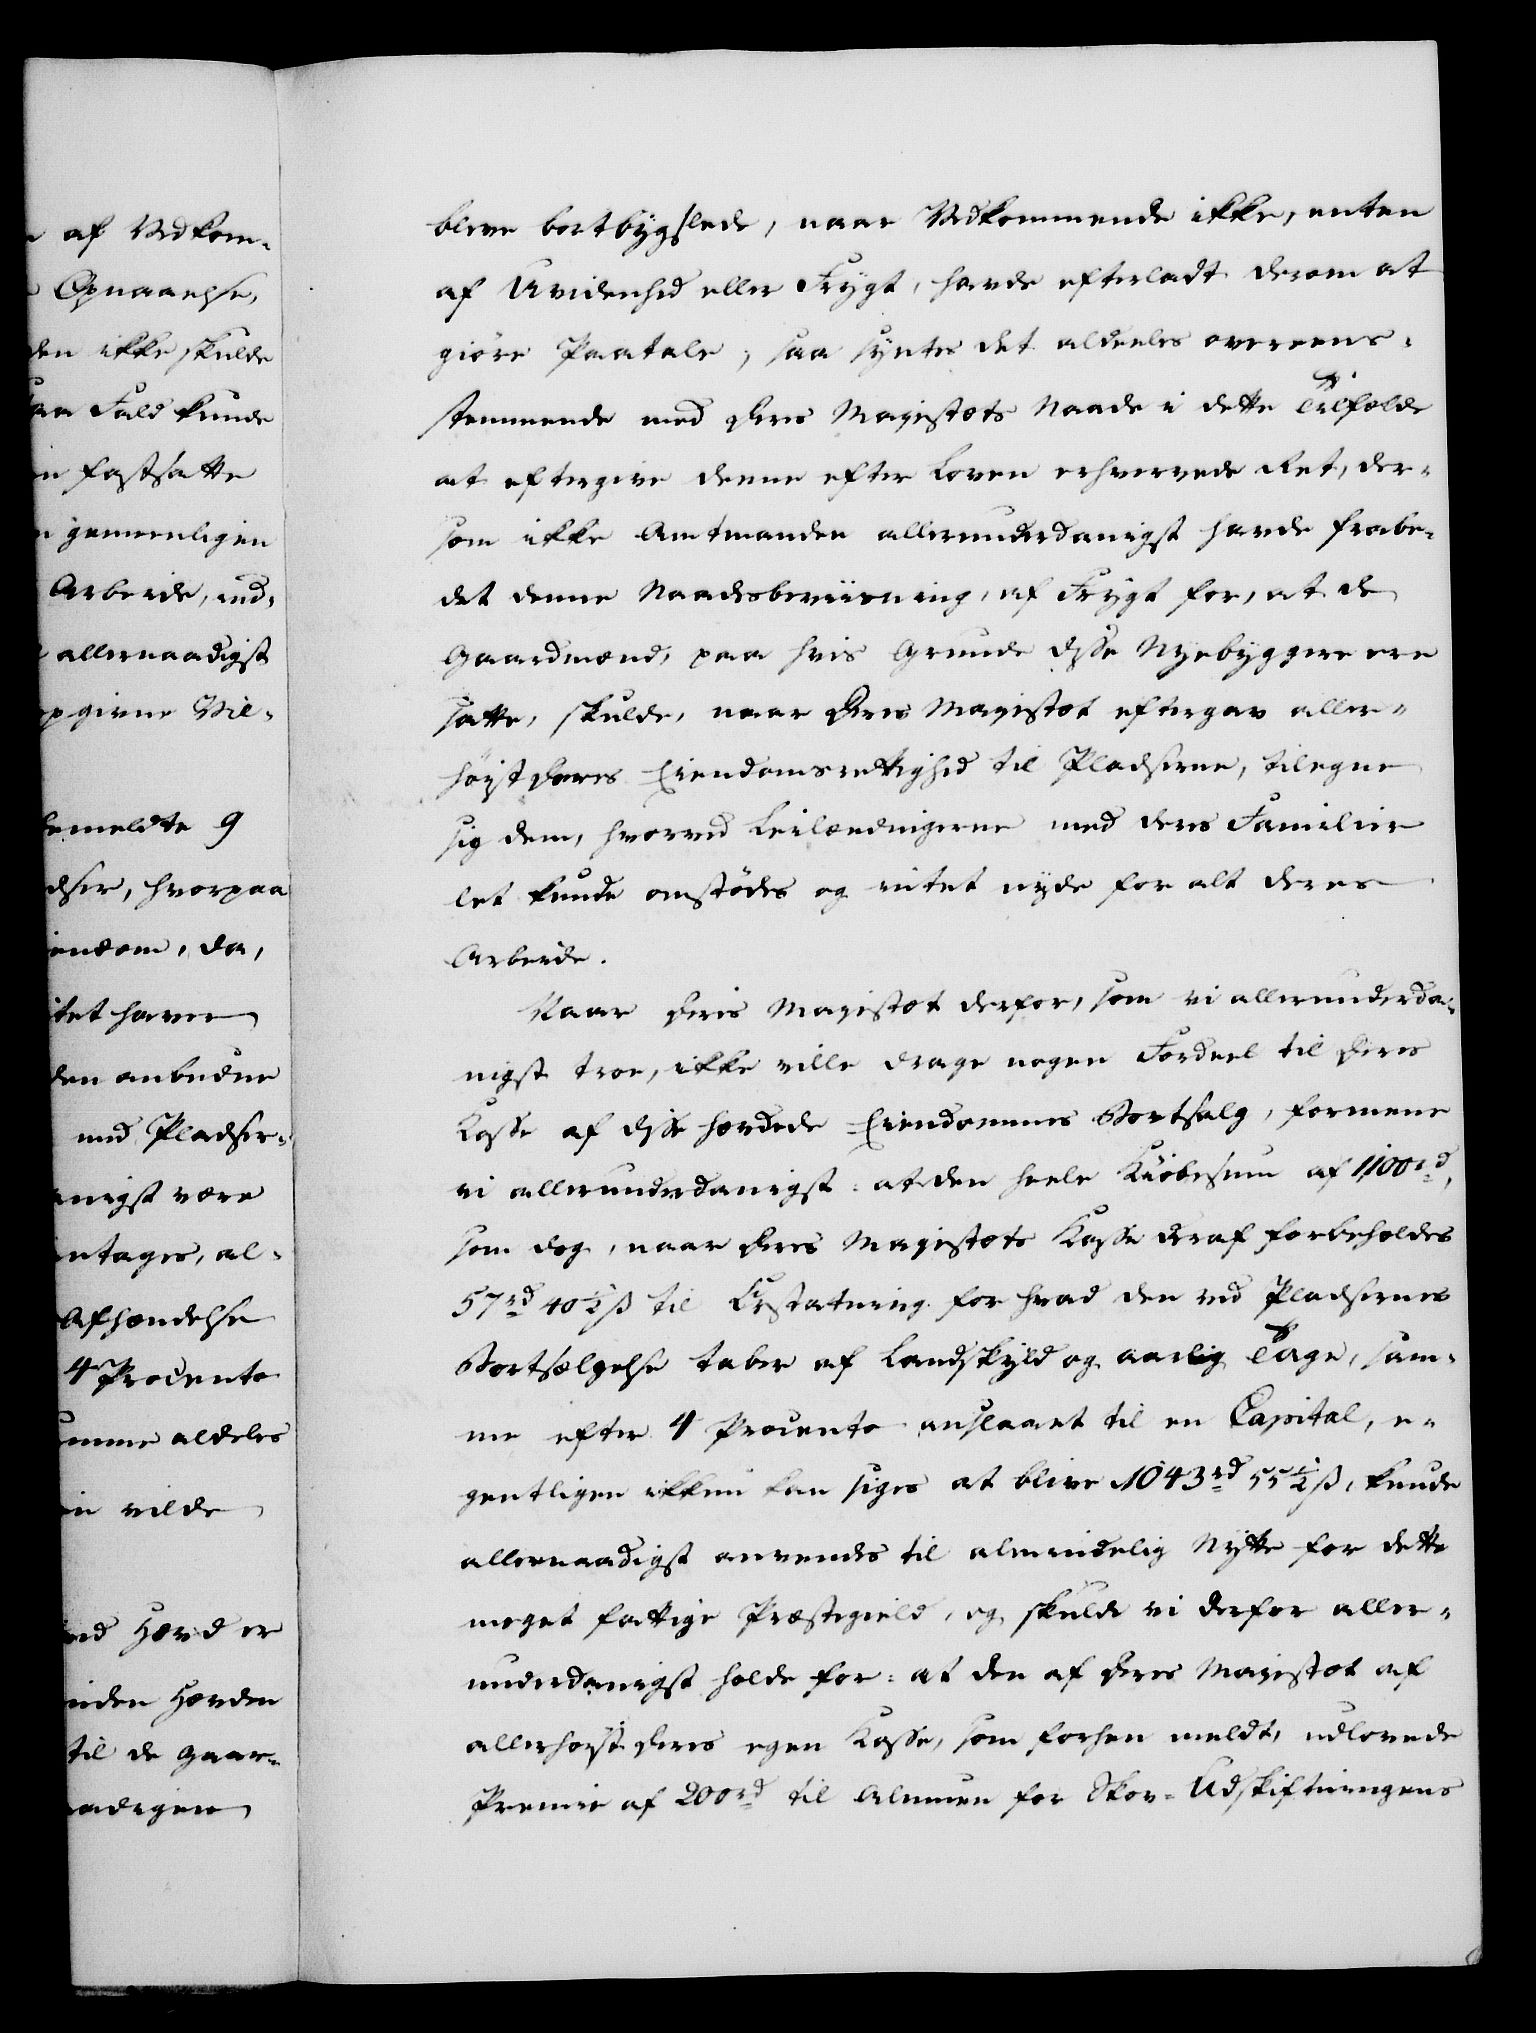 af Vedkom-
Opnaaelse,
den ikke skulde
saa Fald kunde
fastsatte
gemeenligen
Arbeide, ind-
allernaadigst
opgivne Vil-
bemeldte 9
dser, hvorpaa
iendom, da,
itet haver
den anbudne
med Pladser-
anigst være
antages, al-
Afhændelse
4 Procento
omme aldeles
vilde
Hævd er
inden Hævden
til de Gaar-
aadigen
bleve bortbygslede, naar Vedkommende ikke, enten
af Uvidenhed eller Frygt, havde efterladt derom at
giöre Paatale, saa syntes det aldeeles overeens-
stemmende med Deres Majestæts Naade i dette Tilfælde
at eftergive denne efter Loven erhvervede Ret, der-
som ikke Amtmanden allerunderdanigst havde frabe-
det denne Naadesbeviisning, af Frygt for, at de
Gaardmænd, paa hvis Grunde disse Nyebyggere ere
satte, skulde, naar Deres Majestæt eftergav aller-
höist Deres Eiendomsrettighed til Pladserne, tilegne
sig dem, hvorved Leilændingerne med deres Familier
let kunde omstödes og intet nyde for alt deres
Arbeide.
Naar Deres Majestæt derfor, som vi allerunderda-
nigst troe, ikke ville drage nogen Fordeel til Deres
Kasse af disse hævdede Eiendommes Bortsalg, formene
vi allerunderdanigst: at den heele Kiöbesum af 1100 rd,
som dog, naar Deres Majestæts Kasse deraf forbeholdes
57 rd 40½ ß til Erstatning for hvad den ved Pladsernes
Bortsælgelse taber af Landskyld og aarlig Tage, sam-
me efter 4 Procento anslaaet til en Capital, e-
gentligen ikkun kan siges at blive 1043 rd 55½ ß, kunde
allernaadigst anvendes til almindelig Nytte for dette
meget fattige Præstegield, og skulde vi derfor aller-
underdanigst holde for: at den af Deres Majestæt af
allerhöist Deres egen Kasse, som forhen meldt, udlovede
Premie af 200 rd til Almuen for Skov-Udskiftningens